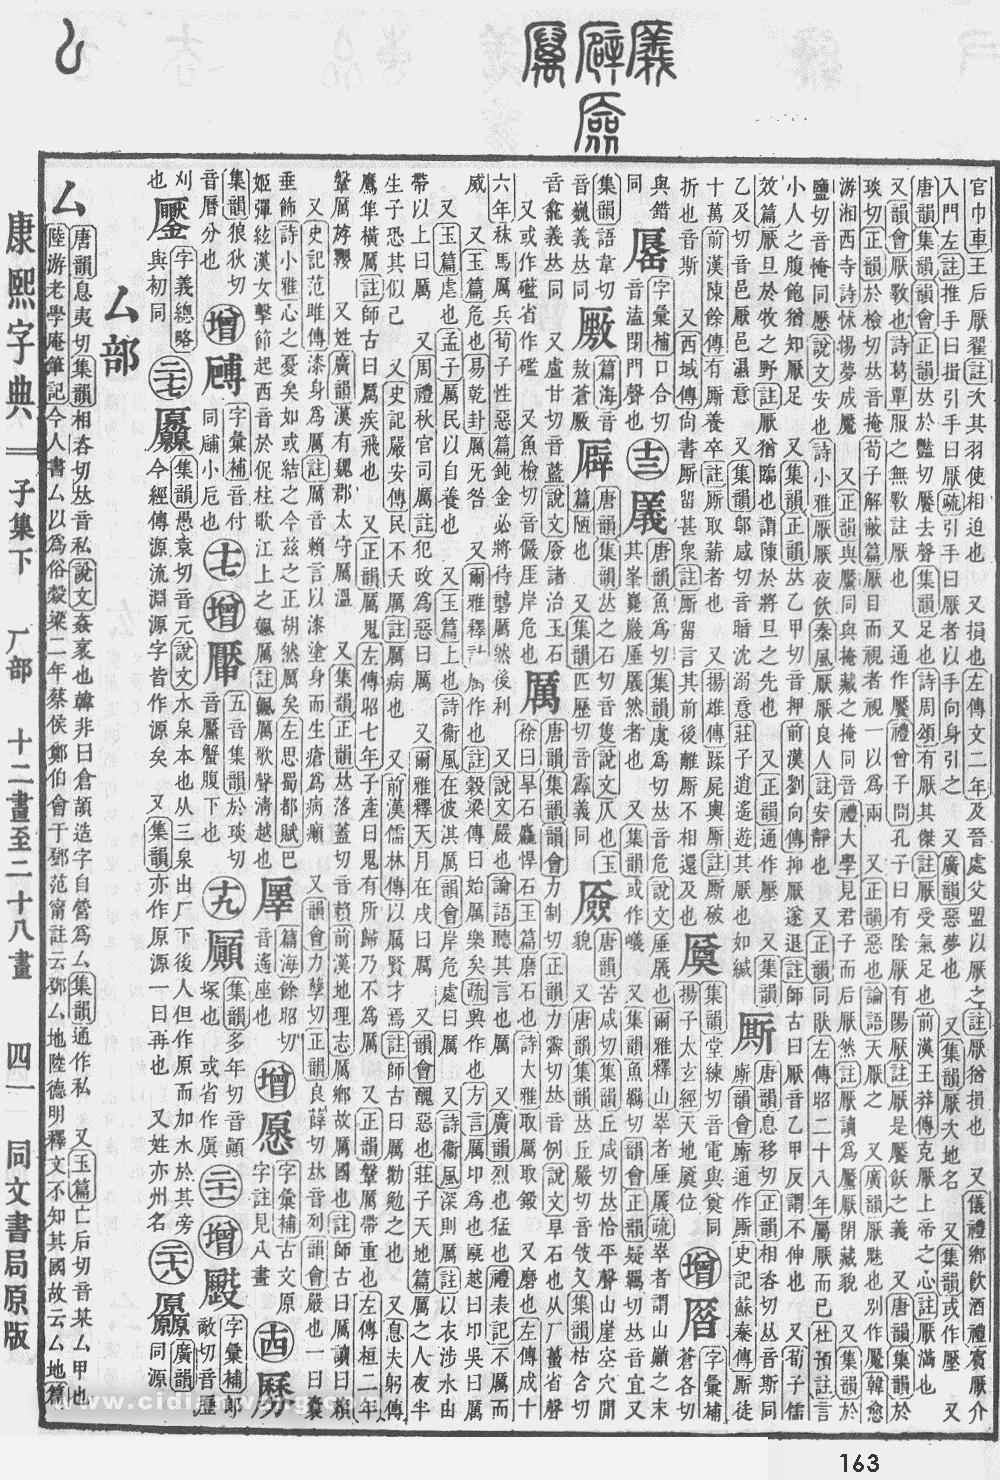 官巾車王后厭翟註次其羽使相迫也 又損也左傳文二年及晉處父盟以厭之註厭猶損也 又儀禮鄉飲酒禮賓厭介
入門左註推手曰揖引手曰厭疏引手曰厭者以手向身引之 又廣韻惡夢也 又集韻厭次地名 又集韻或作壓 又
唐韻集韻韻會正韻𠀤於豔切饜去聲集韻足也詩周頌有厭其傑註厭受氣足也前漢王莽傳克厭上帝之心註厭滿也
又韻會厭斁也詩葛覃服之無斁註厭也 又通作饜禮曾子問孔子曰有陰厭有陽厭註厭是饜飫之義 又唐韻集韻於
琰切正韻於檢切𠀤音掩荀子解蔽篇厭目而視者視一以爲兩 又正韻惡也論語天厭之 又廣韻厭魅也別作魘韓愈
游湘西寺詩怵惕夢成魘 又正韻與黶同與掩藏之掩同音禮大學見君子而后厭然註厭讀爲黶厭閉藏貌 又集韻於
鹽切音懕同懨說文安也詩小雅厭厭夜飮秦風厭厭良人註安靜也 又正韻同猒左傳昭二十八年屬厭而已杜預註言
小人之腹飽猶知厭足 又集韻正韻𠀤乙甲切音押前漢劉向傳抑厭遂退註師古曰厭音乙甲反謂不伸也 又荀子儒
效篇厭旦於牧之野註厭猶臨也謂陳於將旦之先也 又正韻通作壓 又集韻
乙及切音邑厭邑濕意 又集韻鄔感切音暗沈溺意莊子逍遙遊其厭也如緘
厮 唐韻息移切正韻相咨切𠀤音斯同
廝韻會廝通作厮史記蘇秦傳厮徒
十萬前漢陳餘傳有厮養卒註厮取薪者也 又揚雄傳蹂屍輿厮註厮破
折也音斯 又西域傳尙書厮留甚衆註厮留言其前後離厮不相還及也
厧 集韻堂練切音電與奠同
揚子太玄經天地厧位
增 字彙補蒼各切
與錯同
字彙補口合切
音溘閉門聲也
十三
㕒 唐韻魚爲切集韻虞爲切𠀤音危說文厜㕒也爾雅釋山崒者厜㕒疏崒者謂山巔之末
其峯巉巖厜㕒然者也 又集韻或作㠖 又集韻魚羈切韻會正韻疑羈切𠀤音宜又
集韻語韋切
音巍義𠀤同
厫 篇海音
敖蒼厫
厞 唐韻集韻𠀤之石切音隻說文仄也玉
篇陋也 又集韻匹歷切音霹義同
厱 唐韻苦咸切集韻丘咸切𠀤恰平聲山崖空穴閒
貌 又唐韻集韻𠀤丘嚴切音攱又集韻枯含切
音龕義𠀤同 又盧甘切音藍說文厱諸治玉石
也 又或作礛省作㯺 又魚檢切音儼厓岸危也
厲 唐韻集韻韻會力制切正韻力霽切𠀤音例說文旱石也从厂蠆省聲
徐曰旱石麤悍石玉篇磨石也詩大雅取厲取鍛 又磨也左傳成十
六年秣馬厲兵荀子性惡篇鈍金必將待礱厲然後利 又說文嚴也論語聽其言也厲 又廣韻烈也猛也禮表記不厲而
威 又玉篇危也易乾卦厲无咎 又爾雅釋詁厲作也註穀梁傳曰始厲樂矣疏興作也方言厲卬爲也甌越曰卬吳曰厲
又玉篇虐也孟子厲民以自養也 又玉篇上也詩衞風在彼淇厲韻會岸危處曰厲 又詩衞風深則厲註以衣涉水由
帶以上曰厲 又周禮秋官司厲註犯政爲惡曰厲 又爾雅釋天月在戌曰厲 又韻會醜惡也莊子天地篇厲之人夜半
生子恐其似己 又史記嚴安傳民不夭厲註厲病也 又前漢儒林傳以厲賢才焉註師古曰厲勸勉之也 又息夫躬傳
鷹隼橫厲註師古曰厲疾飛也 又正韻厲鬼左傳昭七年子產曰鬼有所歸乃不爲厲 又正韻鞶厲帶垂也左傳桓二年
鞶厲游纓 又姓廣韻漢有魏郡太守厲溫 又集韻正韻𠀤落蓋切音賴前漢地理志厲鄕故厲國也註師古曰厲讀曰賴
又史記范雎傳漆身爲厲註厲音賴言以漆塗身而生瘡爲病癩 又韻會力孽切正韻良薛切𠀤音列韻會嚴也一曰裂
垂飾詩小雅心之憂矣如或結之今茲之正胡然厲矣左思蜀都賦巴
姬彈絃漢女擊節起西音於促柱歌江上之飉厲註飉厲歌聲淸越也
篇海餘昭切
音遙座也
增 字彙補古文原
字註見八畫
十四
集韻狼狄切
音曆分也
增 字彙補音付
同䩉小卮也
十七 增 五音集韻於琰切
音黶蟹腹下也
十九 集韻多年切音顚
塚也 或省作厧
二十一 增 字彙補郞
敵切音歷
刈也
字義總略
與初同
二十七
厵 集韻愚袁切音元說文水泉本也从三泉出厂下後人但作原而加水於其旁
今經傳源流淵源字皆作源矣 又集韻亦作原源一曰再也 又姓亦州名
二十八 廣韻
同源
厶部
厶 唐韻息夷切集韻相咨切𠀤音私說文姦衺也韓非曰倉頡造字自營爲厶集韻通作私 又玉篇亡后切音某厶甲也
陸游老學庵筆記今人書厶以爲俗穀梁二年蔡侯鄭伯會于鄧范甯註云鄧厶地陸德明釋文不知其國故云厶地篇
康熙字典 子集下 厂部 十二畫至二十八畫 四一 同文書局原版
163